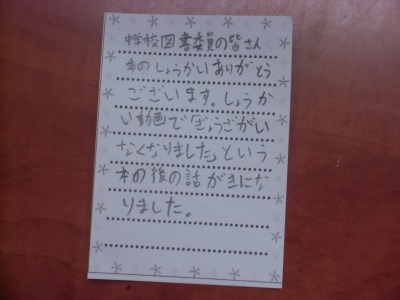 中学校図書委員の皆さん
本のしょうかいありがとう
ございます。しょうか
い動画で「ぎょうざがい
なくなりました」という
本の後の話がきにな
りました。